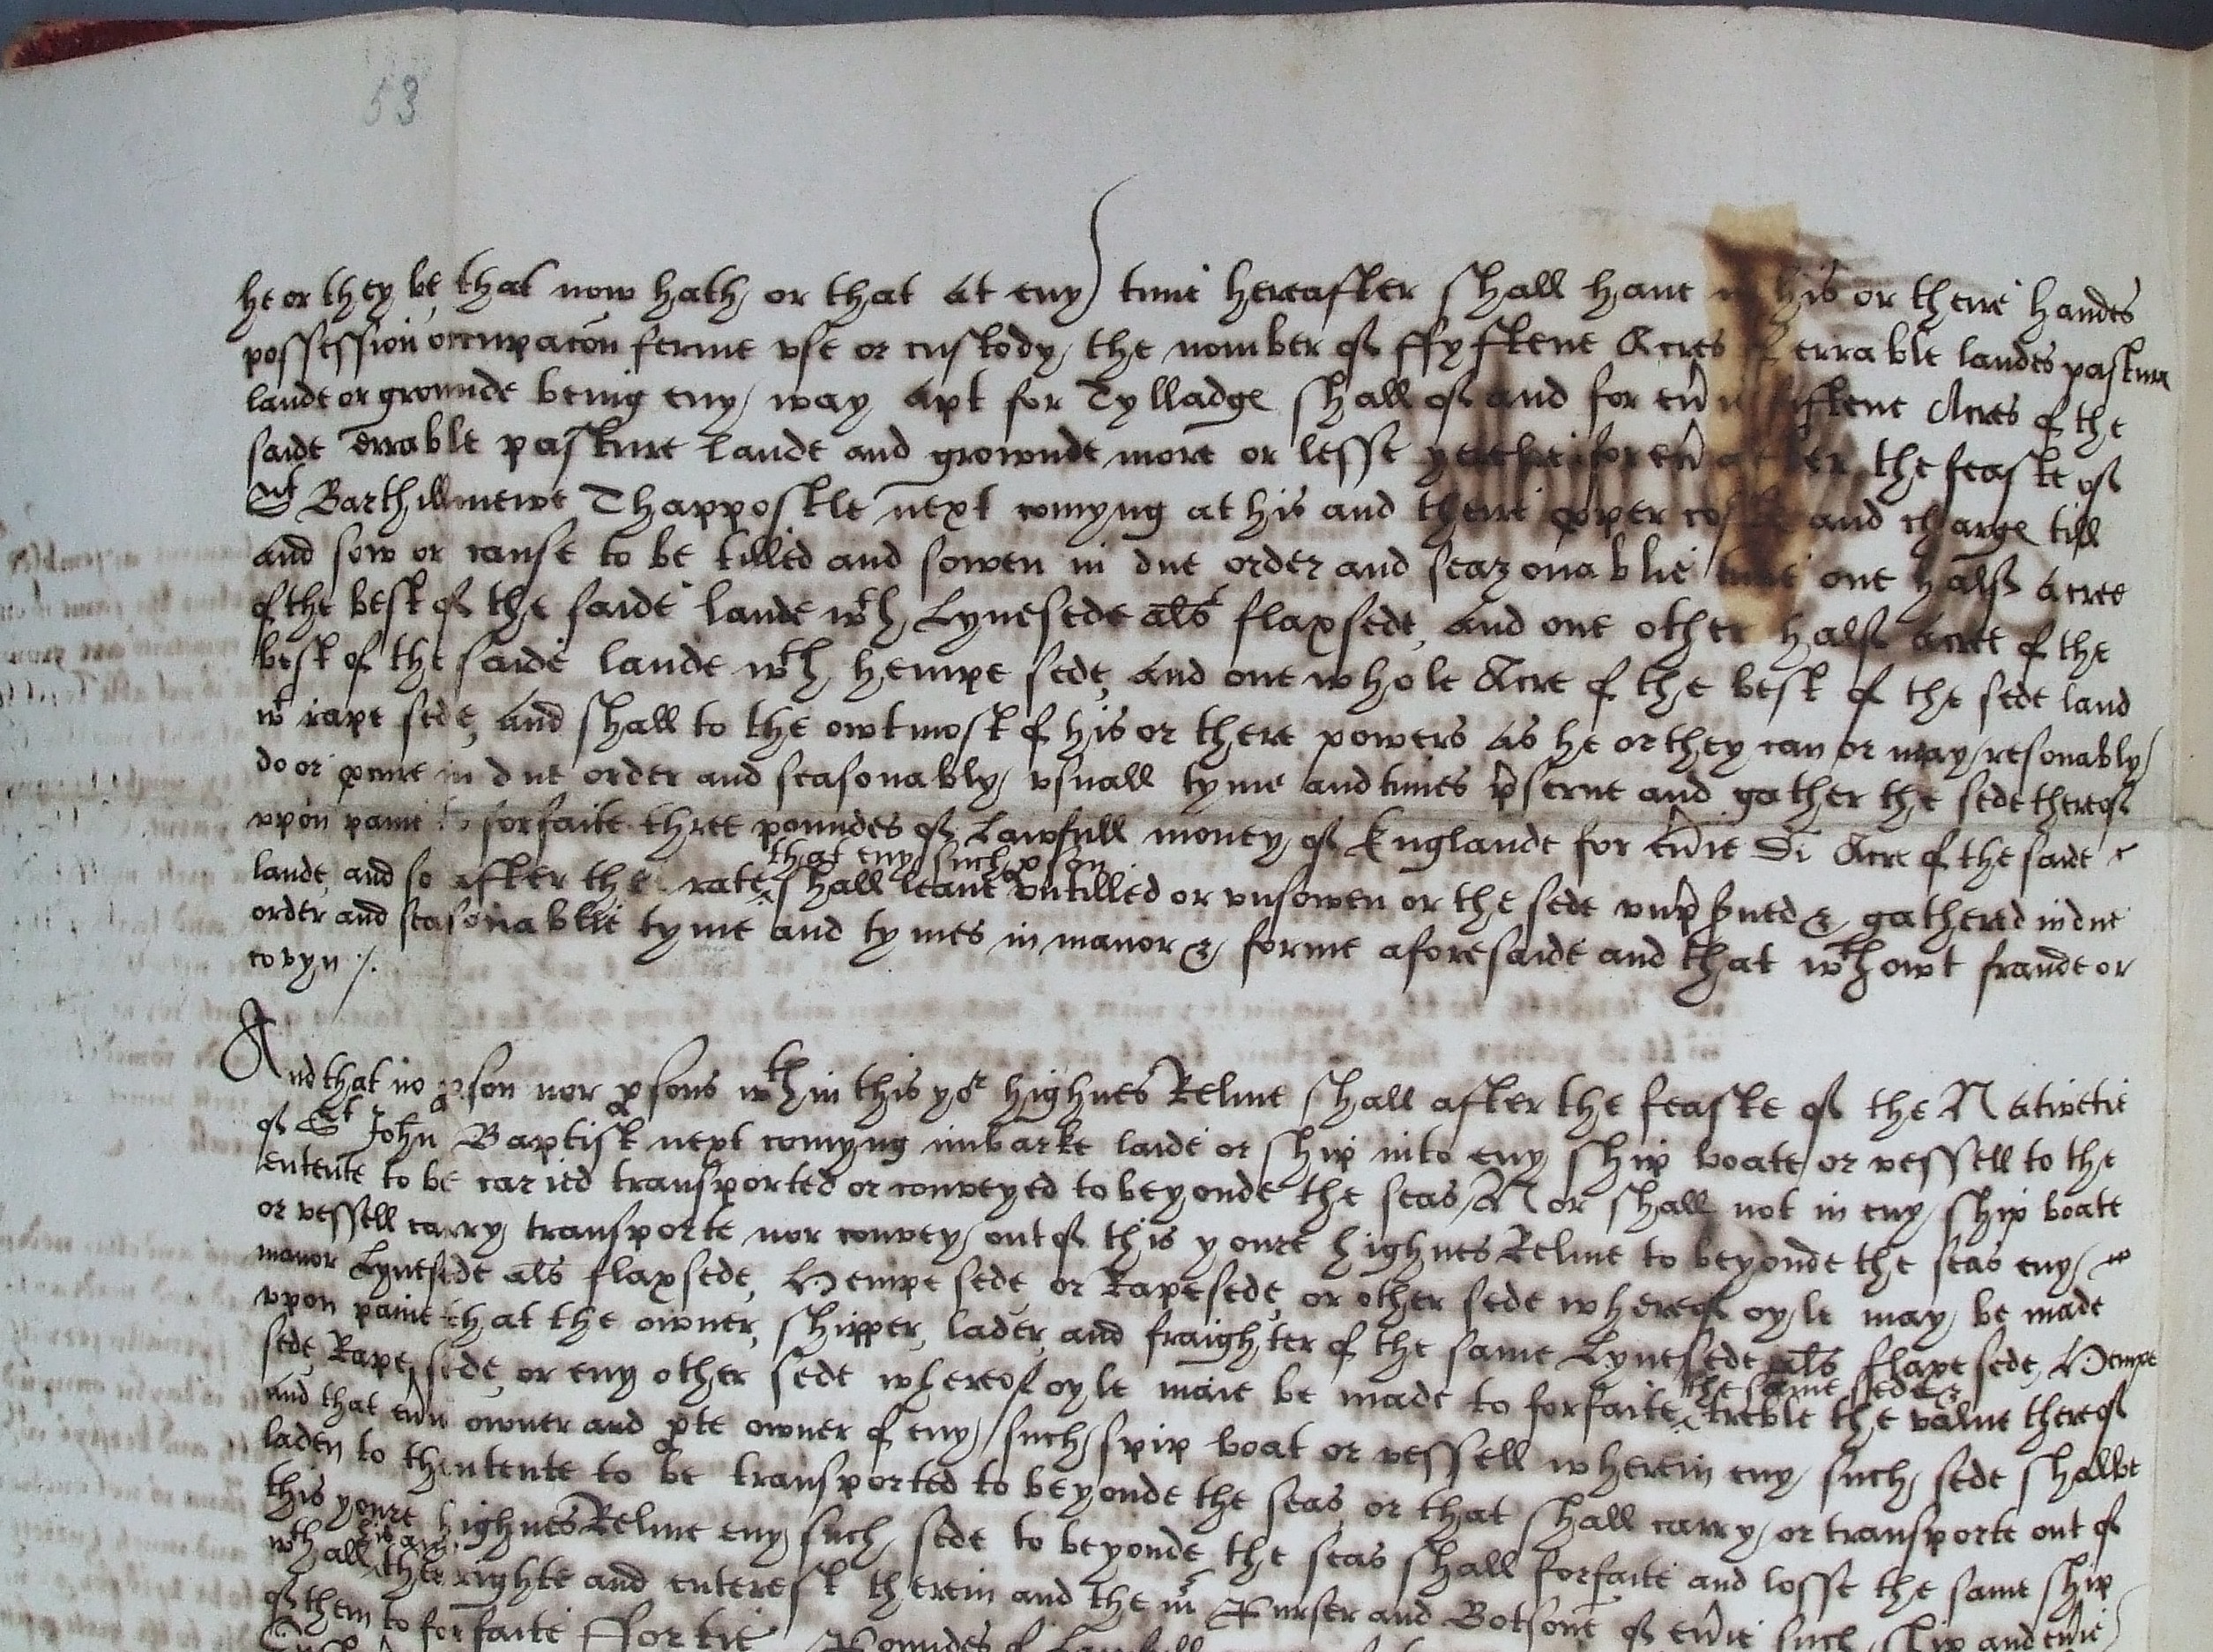 53
he or they be that now hath or that at eny time hereafter shall have his or there handes
possession occupacōn ferme vse or custody the nomber of ffyftene Acres errable landes pasture
lande or grounde being eny way apt for Tylladge shall of and for eūi fiftene Acres of the
saide errable pasture lande and grownde more or lesse for eūi after the feaste of
St Barthillmewe Thappostle next comyng at his and there pper coste and charge till
and sow or cause to be tilled and sowen in due order and seazonablie time one half Acree
of the best of the saide lande wth Lynesede als flaxsede, And one other half Acree of the
best of the saide lande wth hempe sede, And one whole Acre of the best of the sede land
wt rape sede, And shall to the owtmost of his or there powers As he or they can or may resonably
do or pcure in due order and seasonably vsuall tyme and times pserue and gather the sede thereof
vpon paine to forfaite three poundes of Lawfull money of Englande for eūie Di Acre of the saide
that eny such pson
lande, and so after the rate shall leaue vntilled or vnsowen or the sede vnpserued & gathered in due
order and seasonablie tyme and tymes in manor & forme aforesaide and that wthowt fraude or
covyn /.
And that no pson nor psons wthin this yor highnes Relme shall after the feaste of the Nativetie
of St John Baptist next comyng imbarke laide or ship into eny ship boate or vessell to the
entente to be caried transported or conveyed to beyonde the seas / Nor shall not in eny ship boate
or vessell carry transporte nor convey out of this youre highnes Relme to beyonde the seas eny
manor Lynesede als flaxsede, Hempe sede or Rapesede, or other sede whereof oyle may be made
vpon paine that the owner, shipper, lader, and fraighter of the same Lynesede als flaxesede, Hempe
sede, Rape sede, or eny other sede whereof oyle maie be made to forfaite treble the value thereof
the same sede &
And that eūi owner and pte owner of eny such spip boat or vessell wherein eny such sede shalbe
laden to thentente to be transported to beyonde the seas, or that shall carry or transporte out of
this youre highnes Relme eny such sede to beyonde the seas shall forfaite and losse the same ship
wth all ther righte and enterest therein and the mr Purser and Botsone of eūie such ship and eūie
of them to forfaite ffortie Poundes of Lawfull